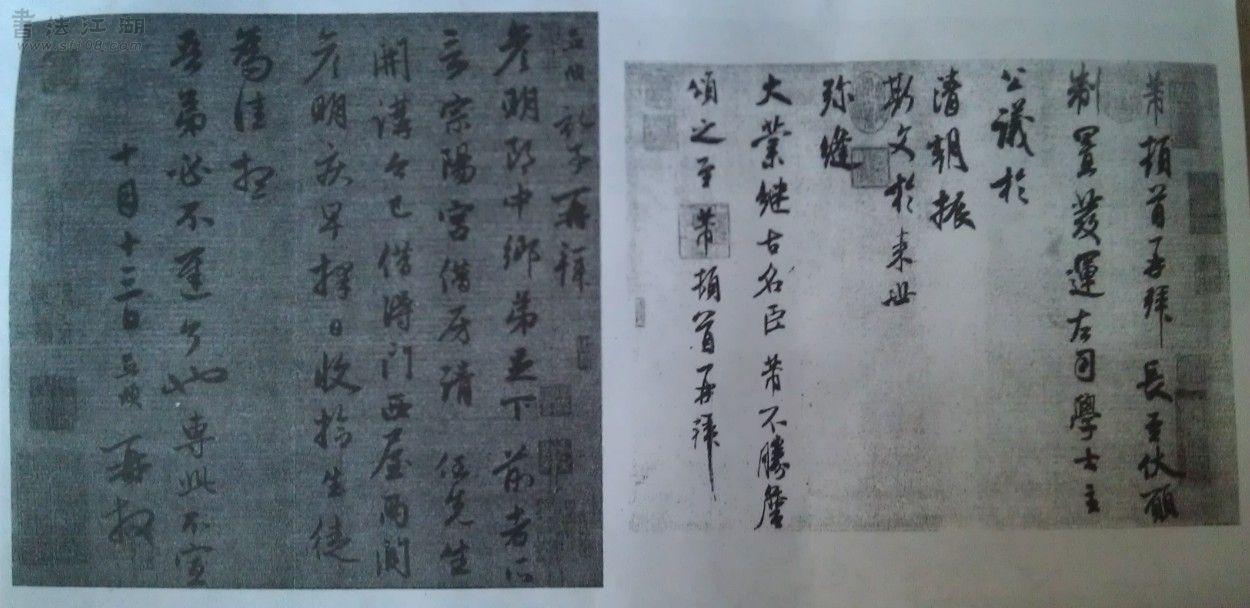 書法江湖
www.sf108.com
芾頓首再拜長至伏願
制置發運左司學士主
公議於
清朝振
斯文於来世
弥縫
大業継古名臣芾不勝詹
頌之至芾頓首再拜
孟頫記事再拜
彦明郎中鄉弟足下前者所
言宗陽宮借房請任先生
開講今已借得門西屋兩間
彦明疾早擇日收拾生徒
為佳想
吾弟必不遲了也專此不宣
十月十三日孟頫再拜